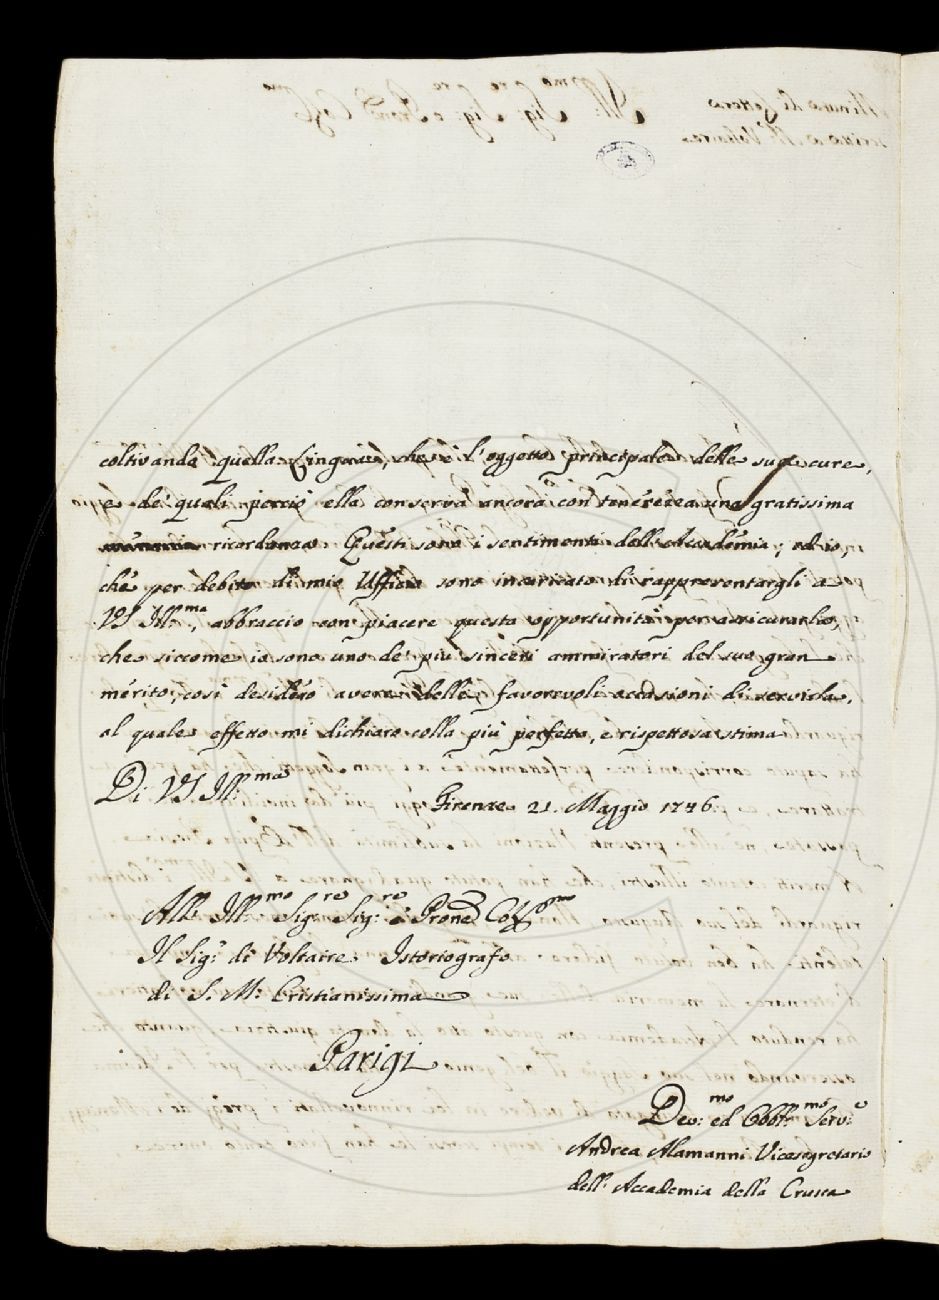 coltivando quella Lingua, che è l'oggetto principale delle sue cure,
e de' quali perciò ella conserva ancora con tenerezza una gratissima
ricordanza. Questi sono i sentimenti dell'Accademia; ed io,
che per debito di mio Uffizio sono incaricato di rappresentargli a
VS Ill:ma, abbraccio con piacere questa opportunità per assicurarla,
che siccome io sono uno de' più sinceri ammiratori del suo gran
merito, così desidero avere delle favorevoli occasioni di servirla,
al quale effetto mi dichiaro colla più perfetta, e rispettosa stima
Di VS Ill:ma
Firenze 21. Maggio 1746.
All' Ill:mo Sig:re Sig:re e Prone Col:mo
Il Sig:r di Voltaire Istoriografo
di S. M: Cristianissima
Parigi
Dev:mo ed Obbl:mo Serv:e
Andrea Alamanni Vicesegretario
dell' Accademia della Crusca